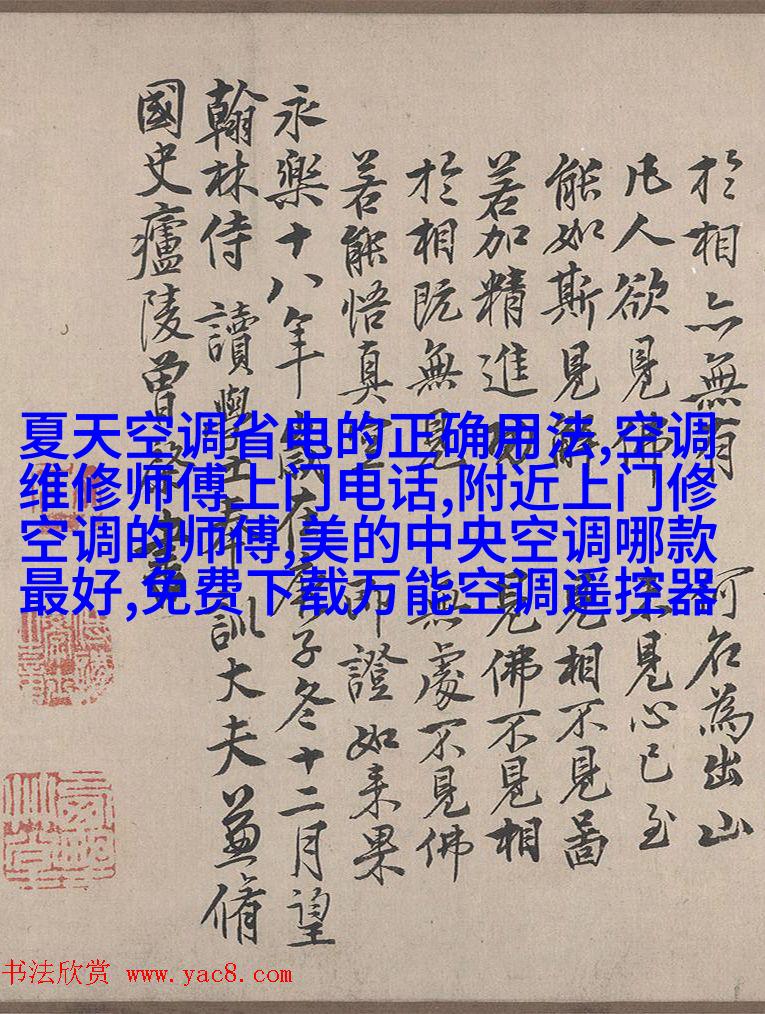 於相亦無有 何名為出山
凡人欲見佛 未見心已至
能如斯見解 見相不見啚
若加精進功 見佛不見相
於相既無見 無處不見佛
若能悟真空 即證如来果
永樂十八年歲在庚子冬十二月望
翰林侍讀學士奉訓大夫兼脩
國史廬陵曾棨書
夏天空调省电的正确用法,空调
维修师傅上门电话,附近上门修
空调的师傅,美的中央空调哪款
最好,免费下载万能空调遥控器
书法欣赏 www.yac8.com